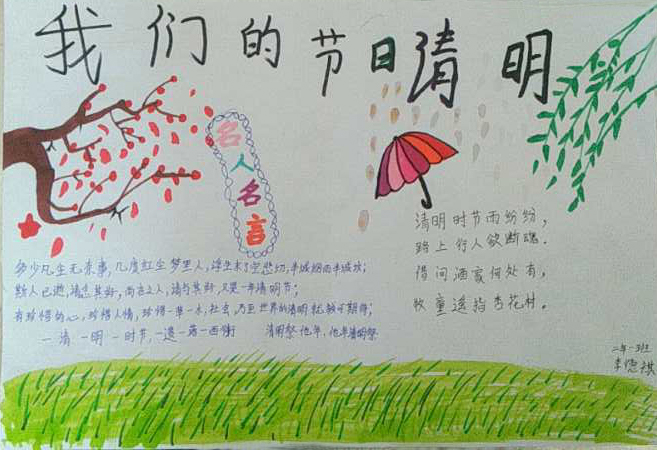 我们的节日清明
名人名言
多少凡生无杂事,几度红尘梦里人,浮生未了空悲切,半城烟雨半城坟;
斯人已逝,请远其好,尚在之人,请与其好,又是一年清明节;
有珍惜的心,珍惜人情,珍惜一草一木,社会,乃至世界的清明就够可期待;
一清一明一时节,一退一落一西衡
清明祭他年,他年清明祭
清明时节雨纷纷,
路上行人欲断魂.
借问酒家何处有,
牧童遥指杏花村.
二年一班
李